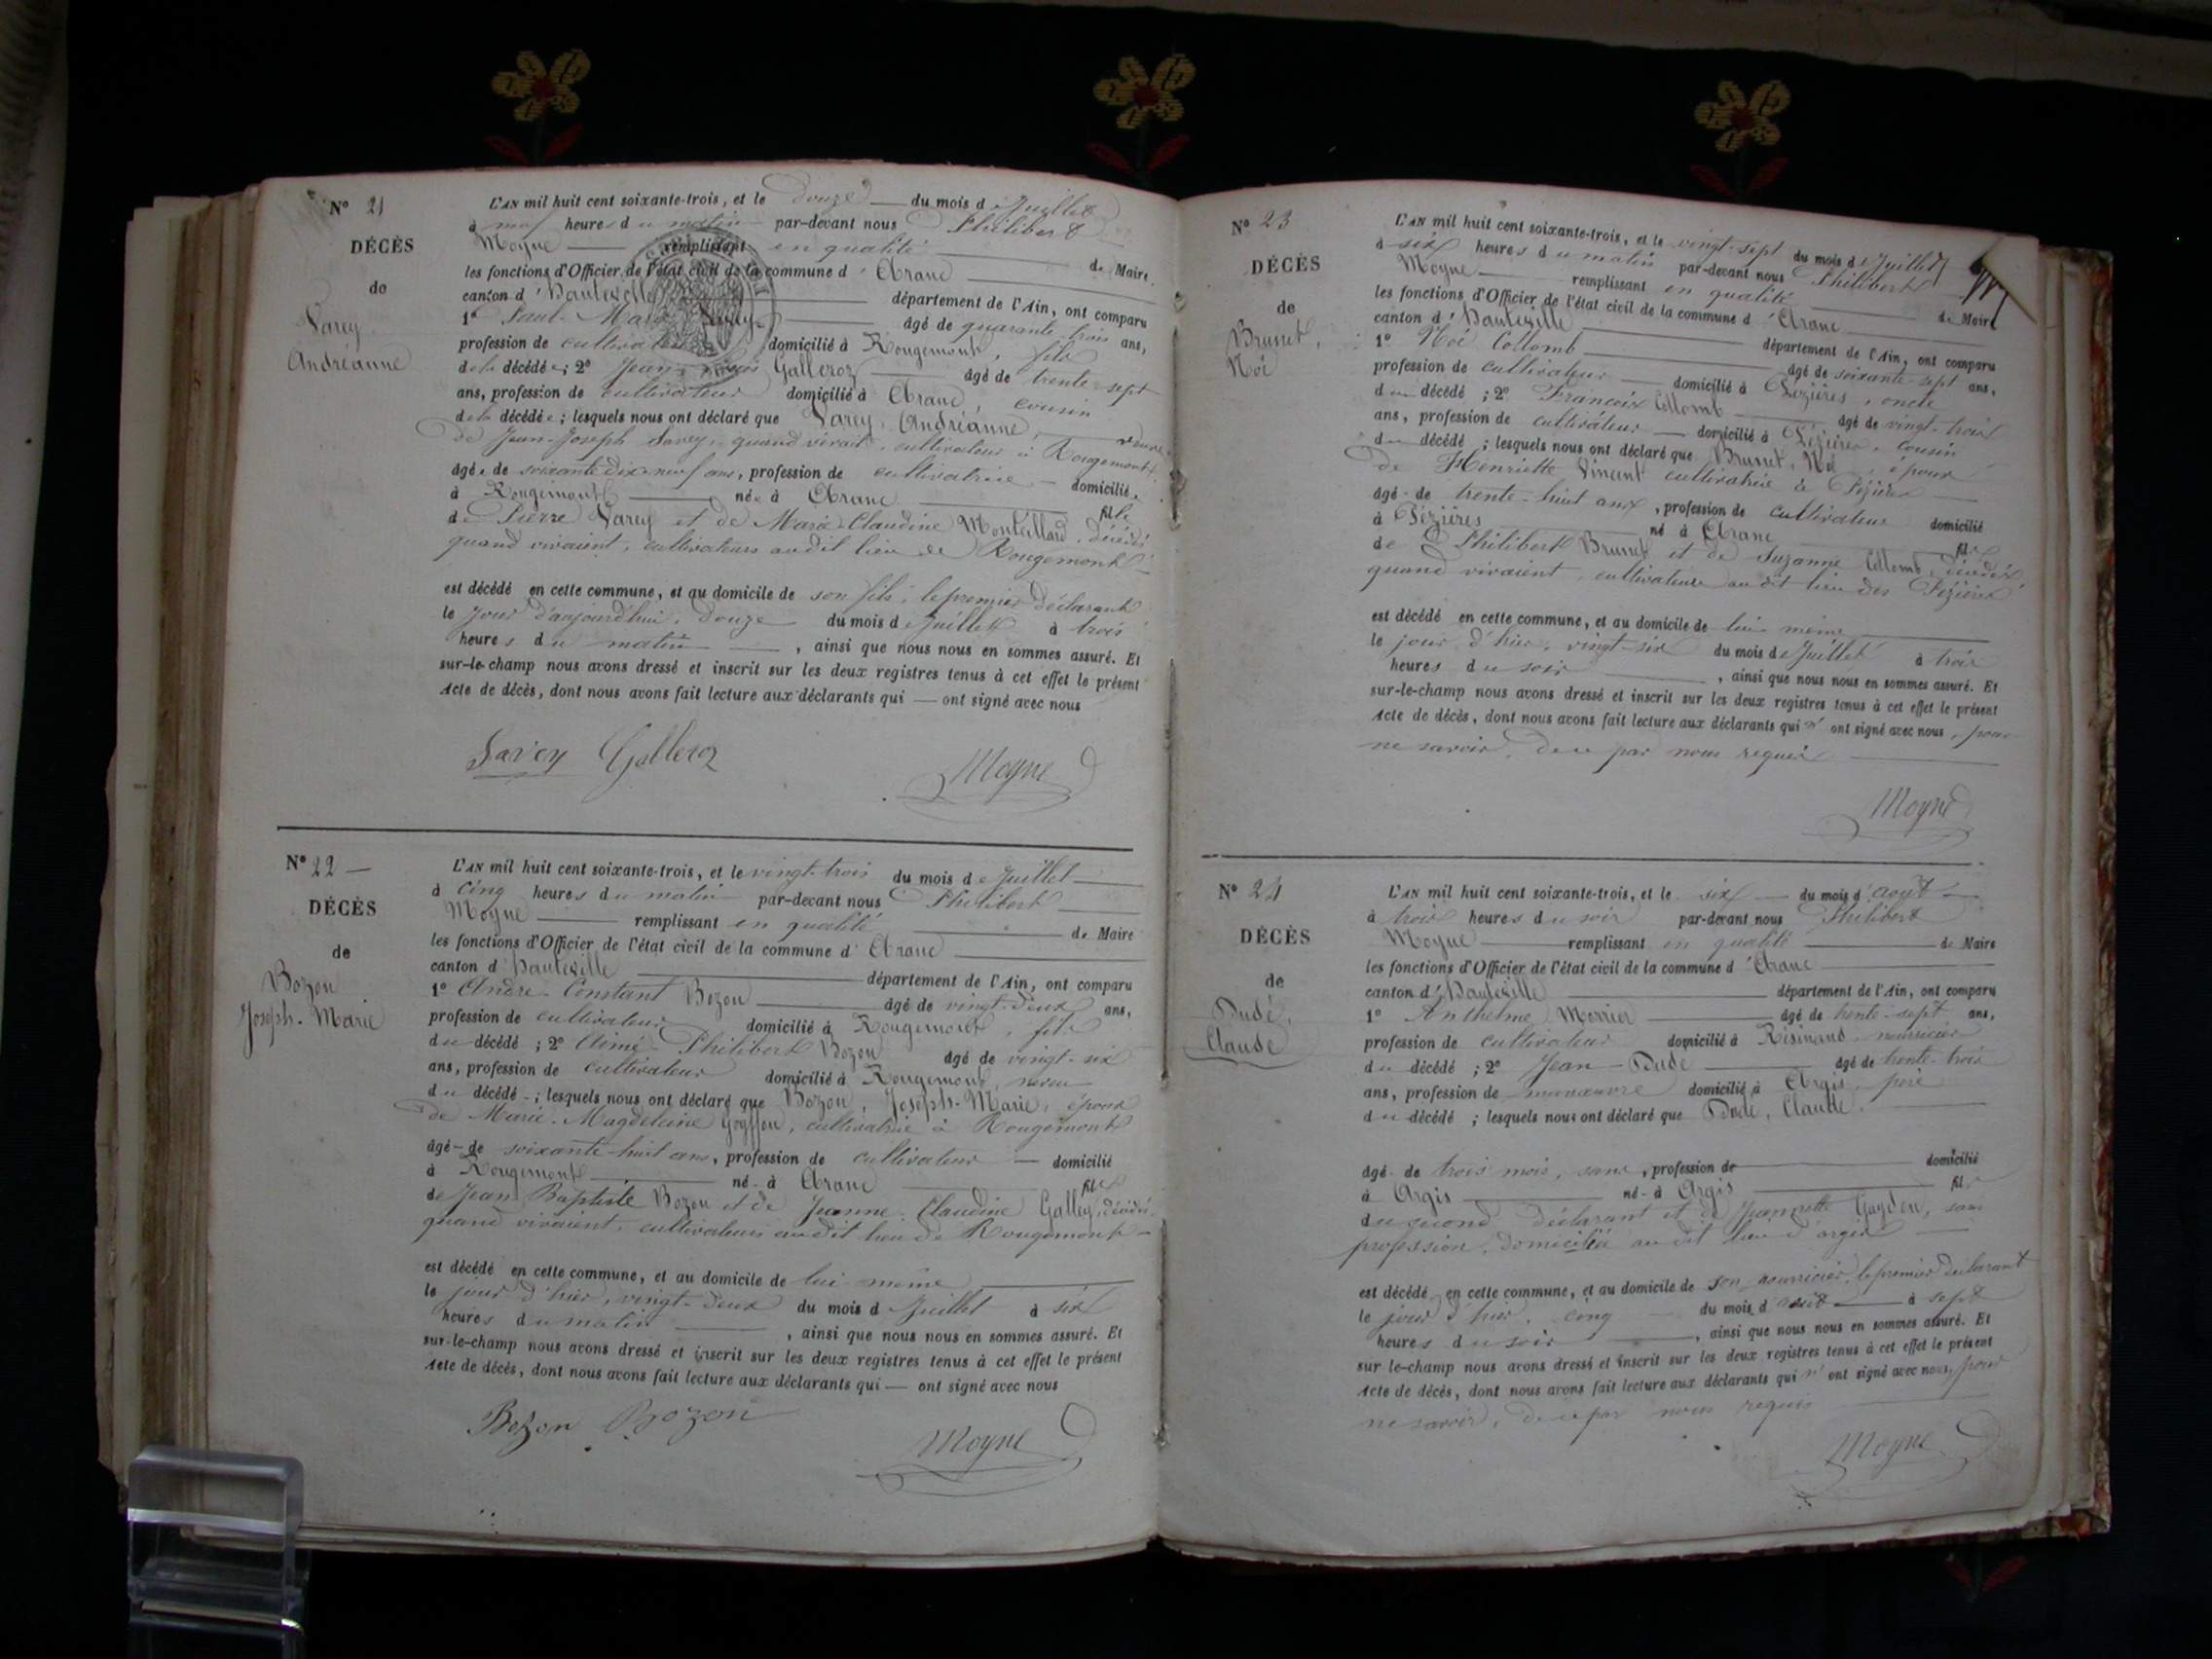 N° 21
DÉCÈS
de
Savey
Andréanne
L'AN mil huit cent soixante-trois, et le douze du mois de Juillet
à neuf heures du matin par-devant nous Philibert
Moyne remplissant en qualité de Maire
les fonctions d'Officier de l'état civil de la commune d'Aranc
canton d'Hauteville département de l'Ain, ont comparu
1° Paul-Marie Savey âgé de quarante-trois ans,
profession de cultivateur domicilié à Rougemont, fils
de la décédée; 2° Jean Galleroz âgé de trente-sept
ans, profession de cultivateur domicilié à Aranc cousin
de la décédée; lesquels nous ont déclaré que Savey, Andréanne, veuve
de Jean-Joseph Savey, quand vivait, cultivateur à Rougemont
âgée de soixante dix-neuf ans, profession de cultivatrice domiciliée
à Rougemont née à Aranc fille
de Pierre Savey et de Marie-Claudine Monteillard, décédés
quand vivaient, cultivateurs audit lieu de Rougemont
est décédé en cette commune, et au domicile de son fils, le premier déclarant
le jour d'aujourd'hui, douze du mois de Juillet à trois
heures du matin, ainsi que nous nous en sommes assuré. Et
sur-le-champ nous avons dressé et inscrit sur les deux registres tenus à cet effet le présent
Acte de décès, dont nous avons fait lecture aux déclarants qui — ont signé avec nous
Savey Galleroz
Moyne
N° 22
DÉCÈS
de
Bozon
Joseph-Marie
L'AN mil huit cent soixante-trois, et le vingt-trois du mois de Juillet
à cinq heures du matin par-devant nous Philibert
Moyne remplissant en qualité de Maire
les fonctions d'Officier de l'état civil de la commune d'Aranc
canton d'Hauteville département de l'Ain, ont comparu
1° André-Constant Bozon âgé de vingt-deux ans,
profession de cultivateur domicilié à Rougemont, fils
du décédé; 2° Aimé-Philibert Bozon âgé de vingt-six
ans, profession de cultivateur domicilié à Rougemont, neveu
du décédé; lesquels nous ont déclaré que Bozon, Joseph-Marie, époux
de Marie-Magdeleine, cultivatrice à Rougemont
âgé de soixante-huit ans, profession de cultivateur domicilié
à Rougemont né à Aranc fils
de Jean Baptiste Bozon et de Jeanne-Claudine Galley, décédés
quand vivaient, cultivateurs audit lieu de Rougemont
est décédé en cette commune, et au domicile de lui-même
le jour d'hier, vingt-deux du mois d Juillet à six
heures du matin, ainsi que nous nous en sommes assuré. Et
sur-le-champ nous avons dressé et inscrit sur les deux registres tenus à cet effet le présent
Acte de décès, dont nous avons fait lecture aux déclarants qui — ont signé avec nous
Bozon Bozon
Moyne
N° 23
DÉCÈS
de
Brunet,
Noé
L'AN mil huit cent soixante-trois, et le vingt-sept du mois de Juillet
à six heures du matin par-devant nous Philibert
Moyne remplissant en qualité de Maire
les fonctions d'Officier de l'état civil de la commune d'Aranc
canton d'Hauteville département de l'Ain, ont comparu
1° Noé Collomb âgé de soixante-sept ans,
profession de cultivateur domicilié à Pézières, oncle
du décédé; 2° François Collomb âgé de vingt-trois
ans, profession de cultivateur domicilié à Pézières, cousin
du décédé; lesquels nous ont déclaré que Brunet, Noé, époux
de Henriette Vincent cultivatrice à Pézières
âgé de trente-huit ans, profession de cultivateur domicilié
à Pézières né à Aranc fils
de Philibert Brunet et de Suzanne Collomb, décédés
quand vivaient, cultivateurs au dit lieu des Pézières
est décédé en cette commune, et au domicile de lui-même
le jour d'hier, vingt-six du mois de Juillet à trois
heures du soir, ainsi que nous nous en sommes assuré. Et
sur-le-champ nous avons dressé et inscrit sur les deux registres tenus à cet effet le présent
Acte de décès, dont nous avons fait lecture aux déclarants qui n' ont signé avec nous, pour
ne savoir, de ce par nous requis
Moyne
N° 24
DÉCÈS
de
Dudé,
Claude
L'AN mil huit cent soixante-trois, et le six du mois d'août
à trois heures du soir par-devant nous Philibert
Moyne remplissant en qualité de Maire
les fonctions d'Officier de l'état civil de la commune d'Aranc
canton d'Hauteville département de l'Ain, ont comparu
1° Anthelme Morrier âgé de trente-sept ans,
profession de cultivateur domicilié à Résinand, nourricier
du décédé; 2° Jean Dudé âgé de trente-trois
ans, profession de manœuvre domicilié à Argis, père
du décédé; lesquels nous ont déclaré que Dudé, Claude,
âgé de trois mois, sans, profession de domicilié
à Argis né à Argis fils
du second déclarant et de Jeannette Guyden, sans
profession, domiciliés au dit lieu d'argis
est décédé en cette commune, et au domicile de son nourricier, le premier déclarant
le jour d'hier, cinq du mois d'août à sept
heures du soir, ainsi que nous nous en sommes assuré. Et
sur-le-champ nous avons dressé et inscrit sur les deux registres tenus à cet effet le présent
Acte de décès, dont nous avons fait lecture aux déclarants qui n' ont signé avec nous, pour
ne savoir, de ce par nous requis
Moyne